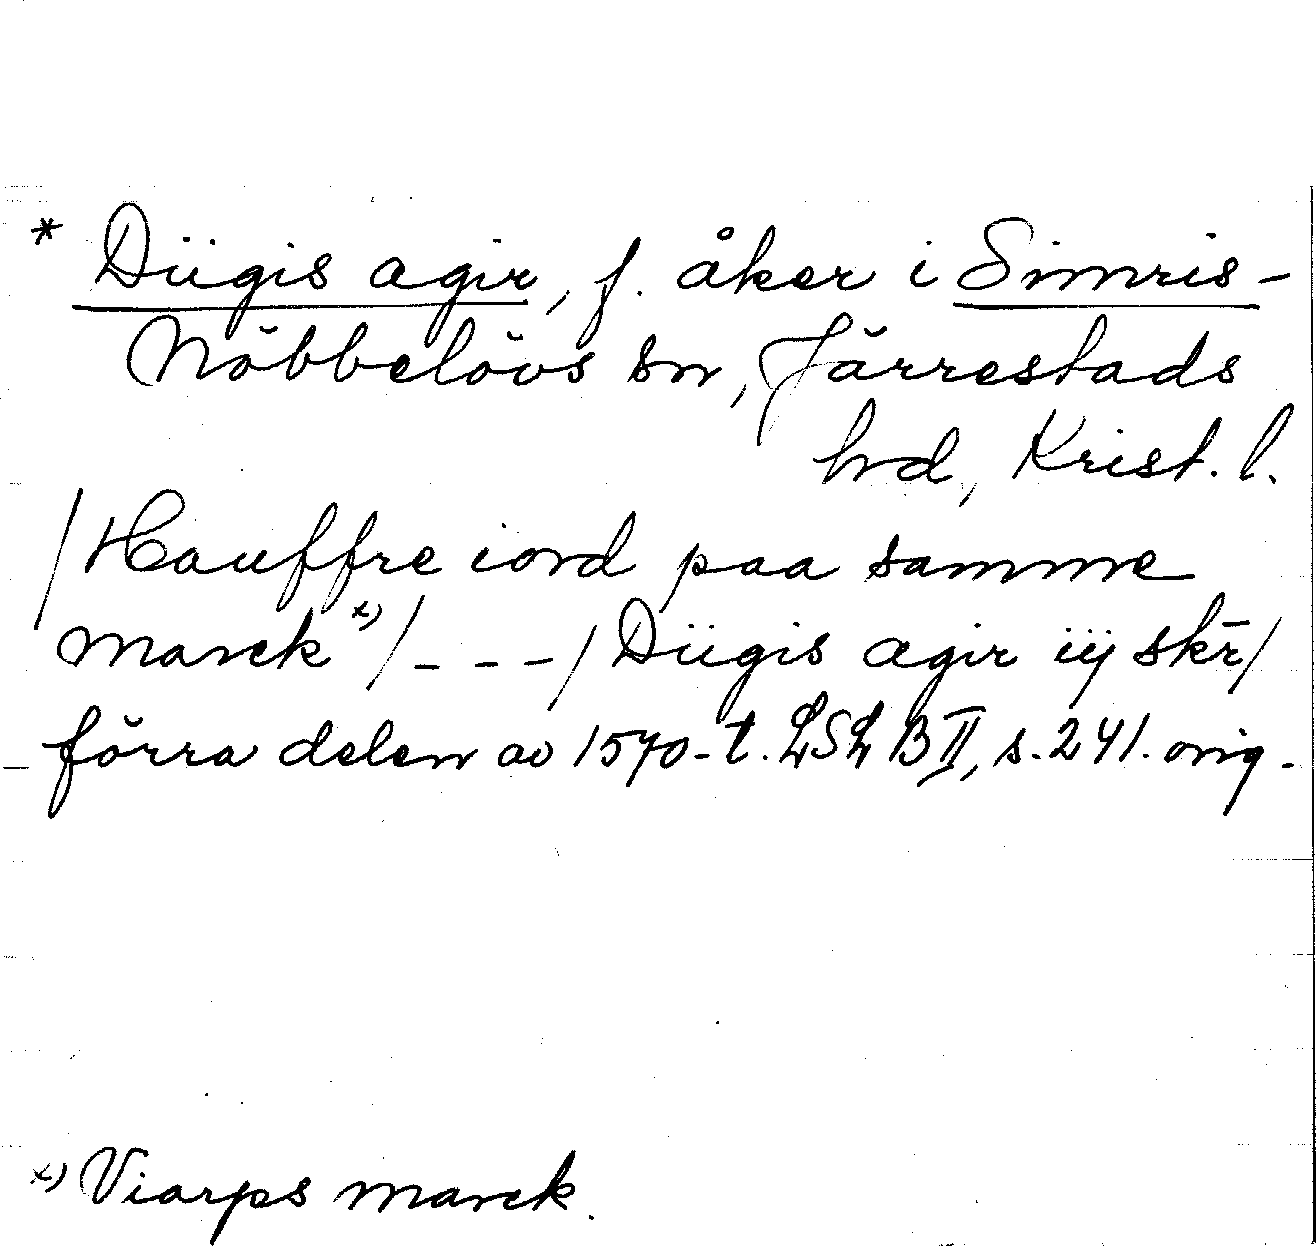 * Dügis agir, f. åker i Simris-
Nöbbelövs sn, Järrestads
hd, Krist. l.
/Hauffre iord paa samme
marck x) / - - - / Dügis agir iij skr̄/
förra delen av 1570-t. LSL B II, s. 241. orig.
x) Viarps marck.